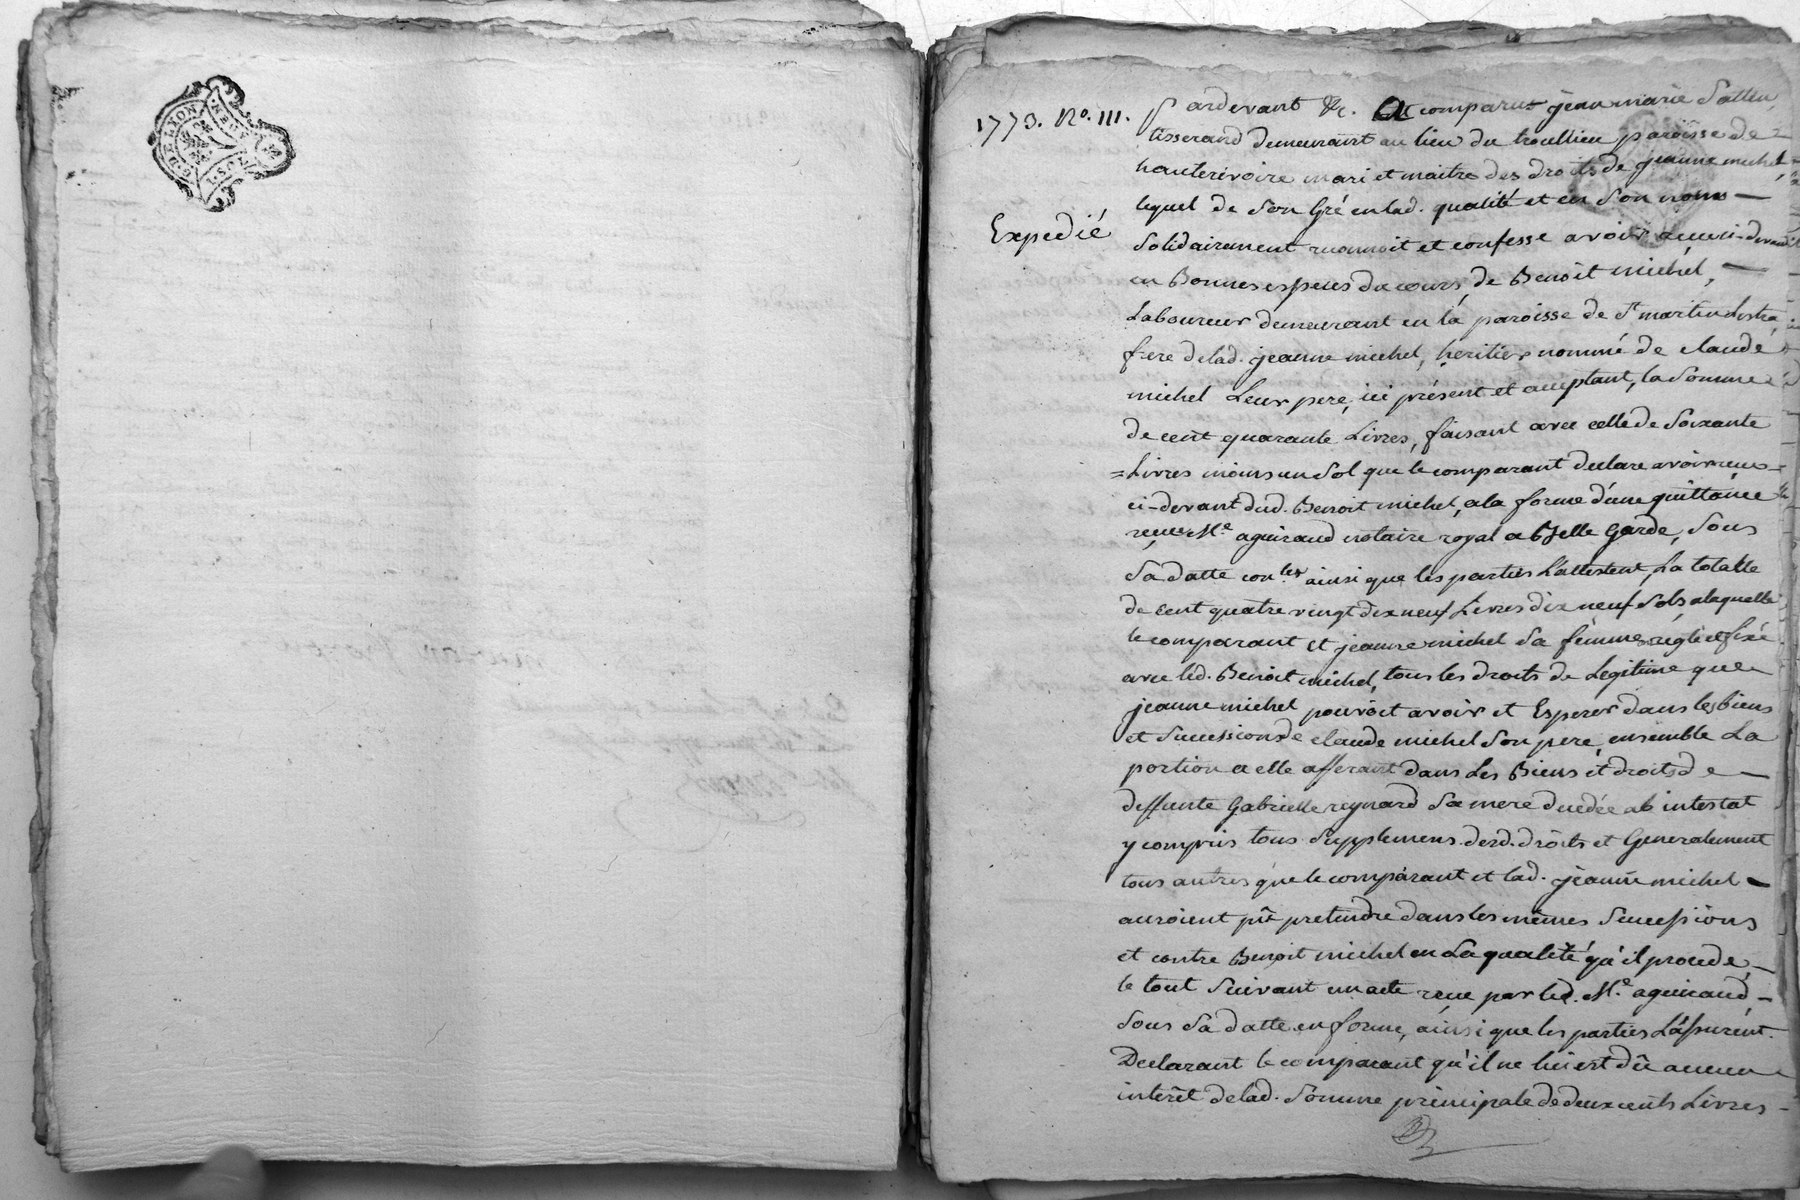 G. DE LYON
1773. No. 111.
Expedié
Pardevant &c. A comparu jean marie
tisserand demeurant au lieu du trouillieu paroisse de
hauterivoire mari et maitre des droits de jeanne michel,
lequel de Son Gré en lad. qualité et en Son nom
Solidairement reconnoit et confesse avoir
en Bonnes especes du cours, de Benoit michel,
Laboureur demeurant en la paroisse de St martin Lestra,
frere de lad. jeanne michel, heritier nommé de claude
michel Leur pere, ici présent et acceptant, la Somme
de cent quarante Livres, faisant avec celle de Soixante
=Livres moins un Sol que le comparant declare avoir reçue
ci-devant dud. Benoit michel, a la forme d'une quittance
reçue Me. aguiraud notaire royal a Belle Garde, Sous
Sa datte con.lée ainsi que les parties L'attestent, La totalle
de cent quatre vingt dix neuf Livres dix neuf Sols a laquelle
le comparant et jeanne michel Sa femme, reglé et fixé
avec led. Benoit michel, tous les droits de Legitime que
jeanne michel pouvoit avoir et Esperer dans les biens
et Successions de claude michel Son pere, ensemble La
portion a elle afferant dans Les Biens et droits de
deffunte Gabrielle reynard Sa mere decedée ab intestat
y compris tous Supplemens desd. droits et Generalement
tous autres que le comparant et lad. jeanne michel
auroient pû pretendre dans les mêmes Successions
et contre Benoit michel en La qualité qu'il procede,
le tout Suivant un acte reçu par led. Me. aguiraud
Sous Sa datte en forme, ainsi que les parties L'assurent.
Declarant le comparant qu'il ne lui est dû aucun
interêt de lad. Somme principale de deux cents Livres